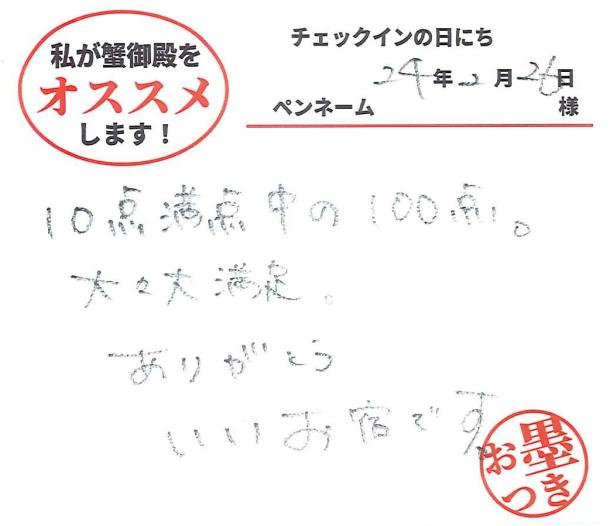 私が蟹御殿を
オススメ
します！
チェックインの日にち
24年2月26日
ペンネーム 様
10点満点中の100点。
大々大満足。
ありがとう
いいお宿です。
お墨つき